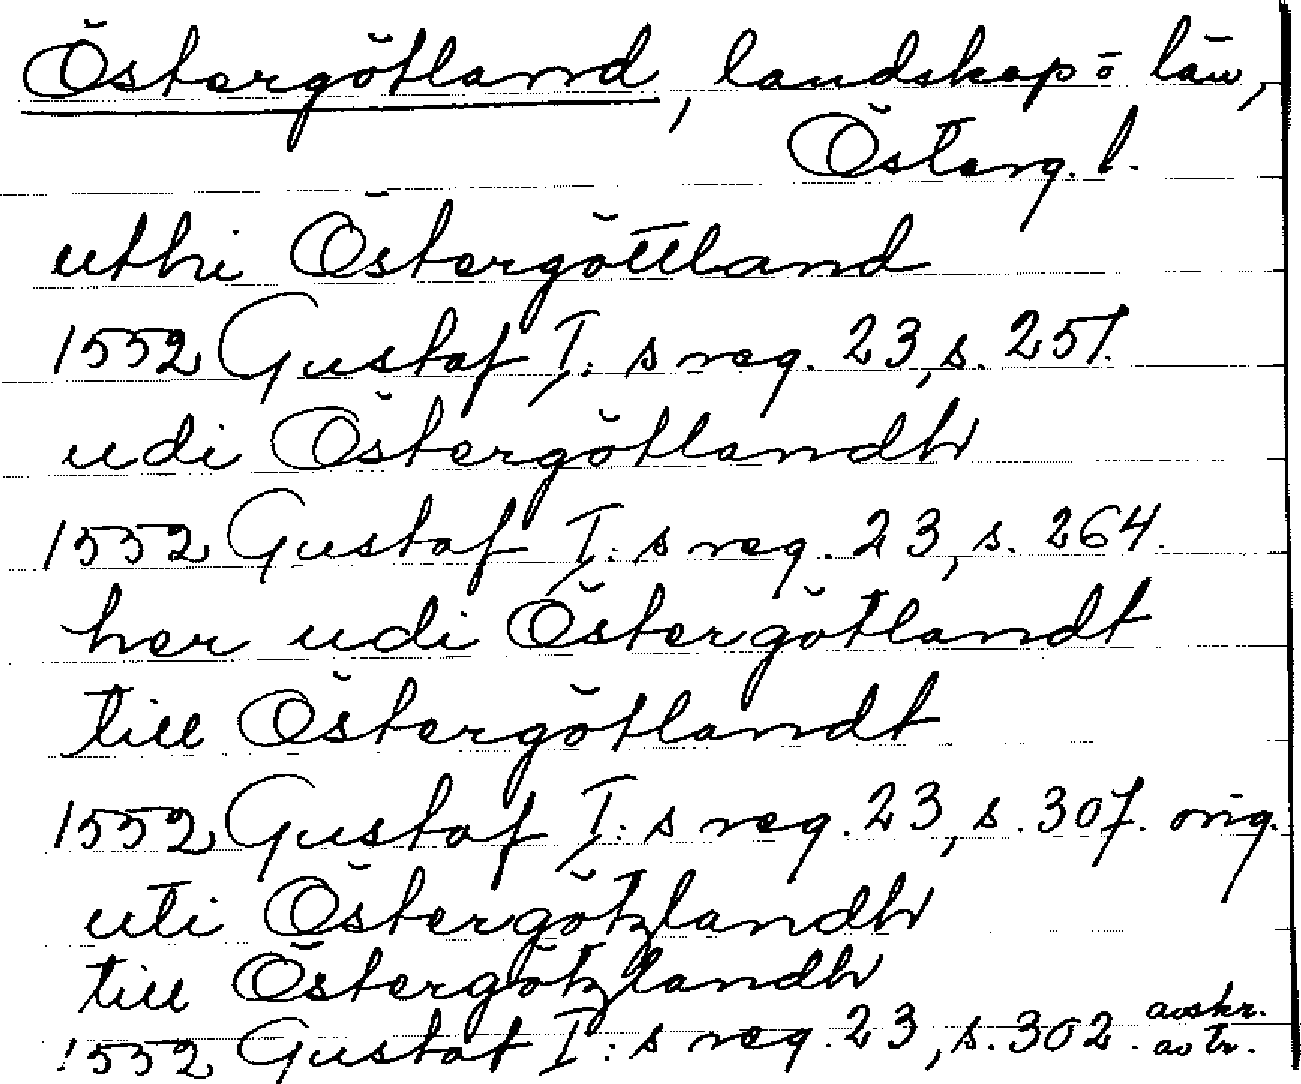 Östergötland, landskap o län,
Österg. l.
uthi Östergöttland
1552 Gustaf I:s reg. 23, s. 257.
udi Östergötlandh
1552 Gustaf I:s reg. 23, s. 264.
her udi Östergötlandt
till Östergötlandt
1552 Gustaf I:s reg. 23, s. 307. orig.
uti Östergötzlandh
till Östergötzlandh
1552 Gustaf I:s reg. 23, s. 302. avskr. av tr.